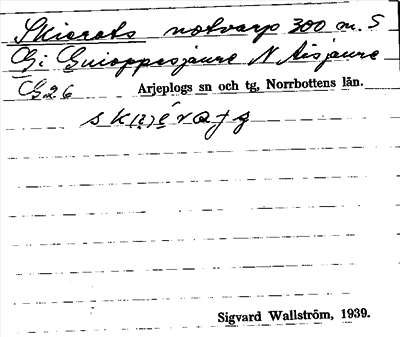 Skierats notvarp 300 m. S
Eg: Guioppesjaure N Aisjaure
26 Arjeplogs sn och tg, Norrbottens län.
Sigvard Wallström, 1939.